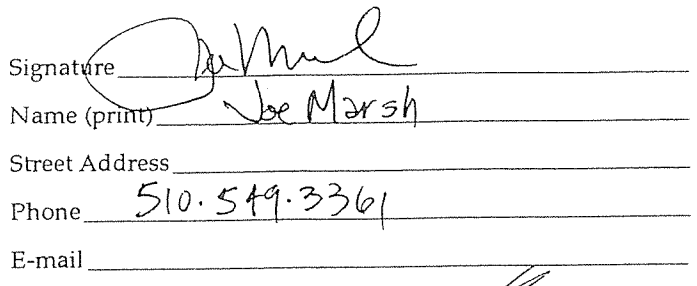 Signature Joe Marsh
Name (print) Joe Marsh
Street Address
Phone 510.549.3361
E-mail